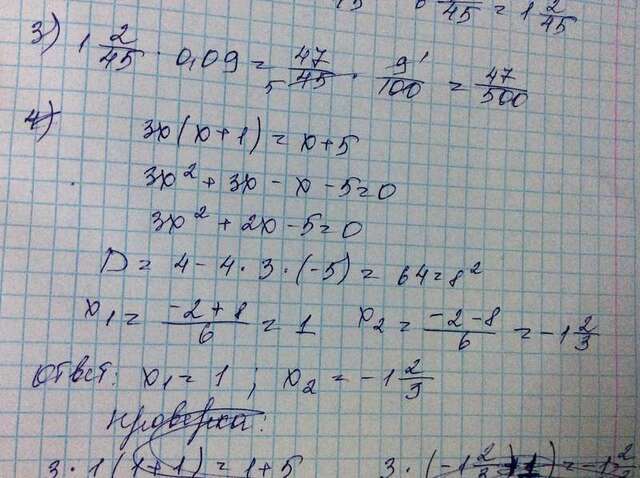 45 = 1 2/45
3) 1 2/45 · 0,09 = 47/45 5 · 9 1/100 = 47/500
4) 3x(x+1) = x+5
3x² + 3x - x - 5 = 0
3x² + 2x - 5 = 0
D = 4 - 4 · 3 · (-5) = 64 = 8²
x₁ = -2 + 8/6 = 1 x₂ = -2 - 8/6 = -1 2/3
Ответ: x₁ = 1 ; x₂ = -1 2/3
Проверка:
3 · 1(1+1) = 1+5 3 · (-1 2/3